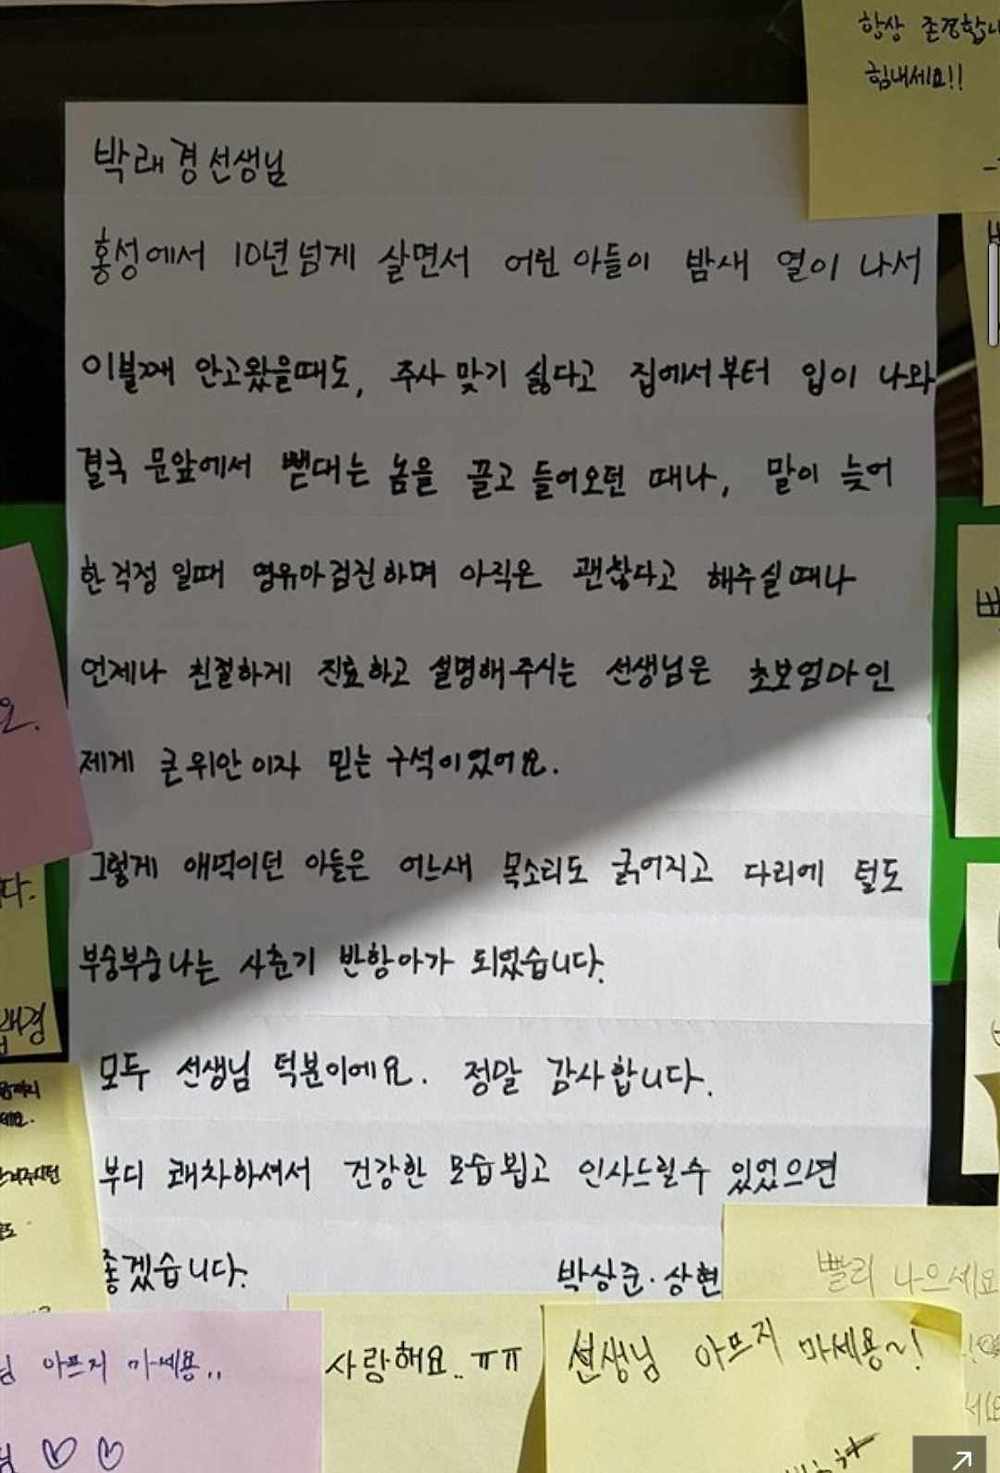 항상 존경합니
힘내세요!!
박래경선생님
홍성에서 10년넘게 살면서 어린 아들이 밤새 열이 나서
이불째 안고왔을때도, 주사 맞기 싫다고 집에서부터 입이 나와
결국 문앞에서 뻗대는 놈을 끌고 들어오던 때나, 말이 늦어
한걱정 일때 영유아검진하며 아직은 괜찮다고 해주실때나
언제나 친절하게 진료하고 설명해주시는 선생님은 초보엄마인
제게 큰위안이자 믿는구석이었어요.
그렇게 애먹이던 아들은 어느새 목소리도 굵어지고 다리에 털도
부숭부숭나는 사춘기 반항아가 되었습니다.
모두 선생님 덕분이에요. 정말 감사합니다.
부디 쾌차하셔서 건강한 모습뵙고 인사드릴수 있었으면
좋겠습니다.
박상준·상현
빨리 나으세요
님 아프지 마세용..
님 ♡ ♡
사랑해요..ㅠㅠ
선생님 아프지 마세용~!
요.
다.
래경